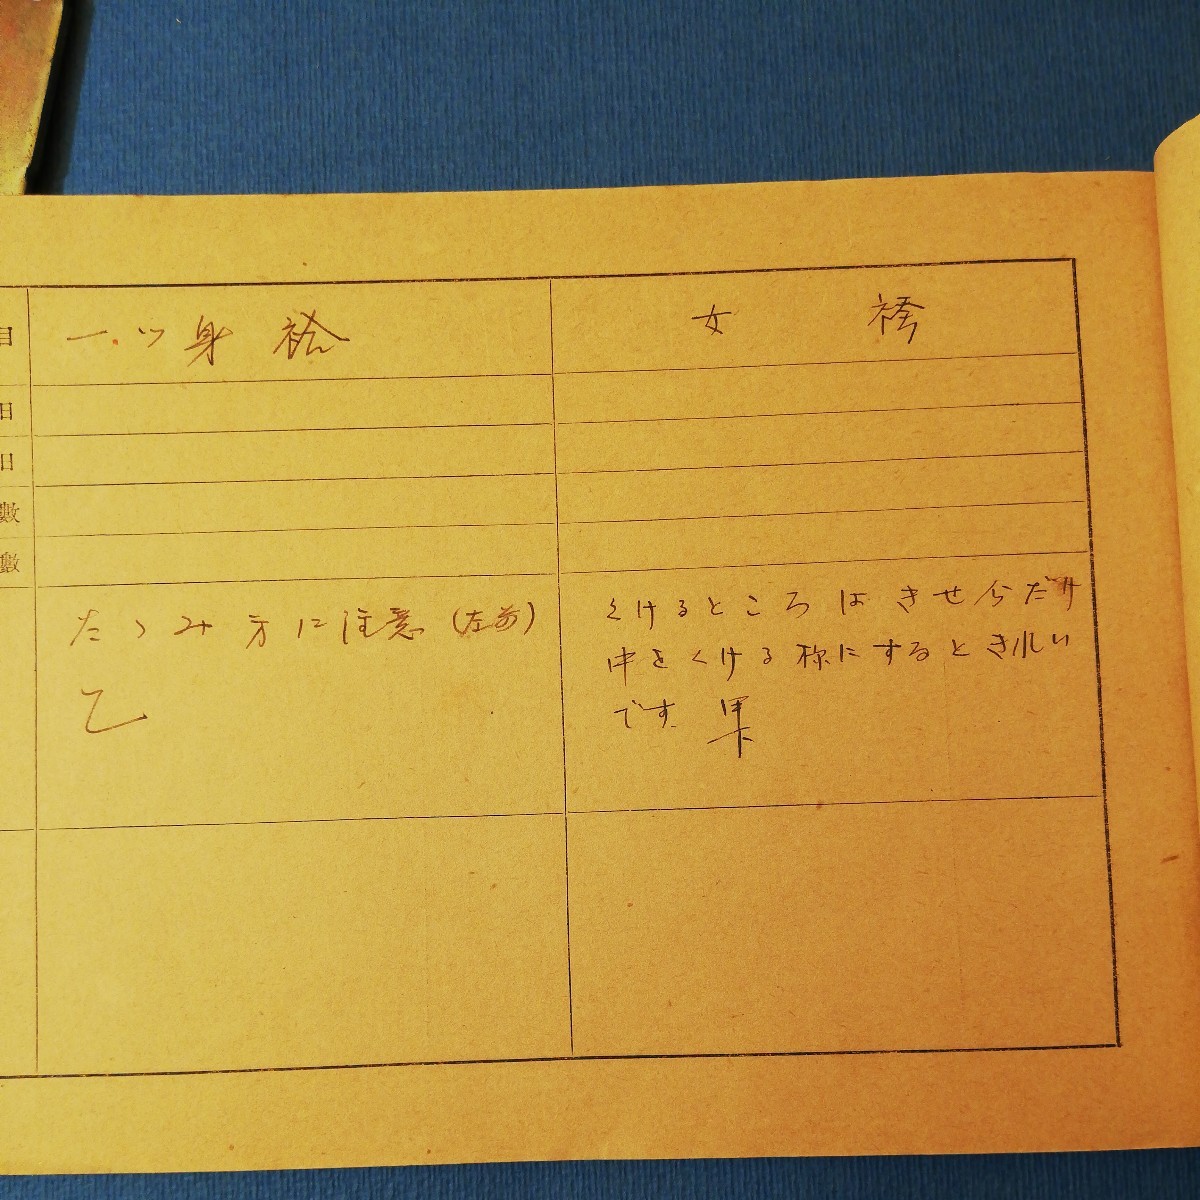 目
一ツ身 袷
女 袴
日
日
數
數
たゝみ方に注意(左前)
乙
くけるところはきせ分だけ
中をくける様にするときれい
です. 甲下